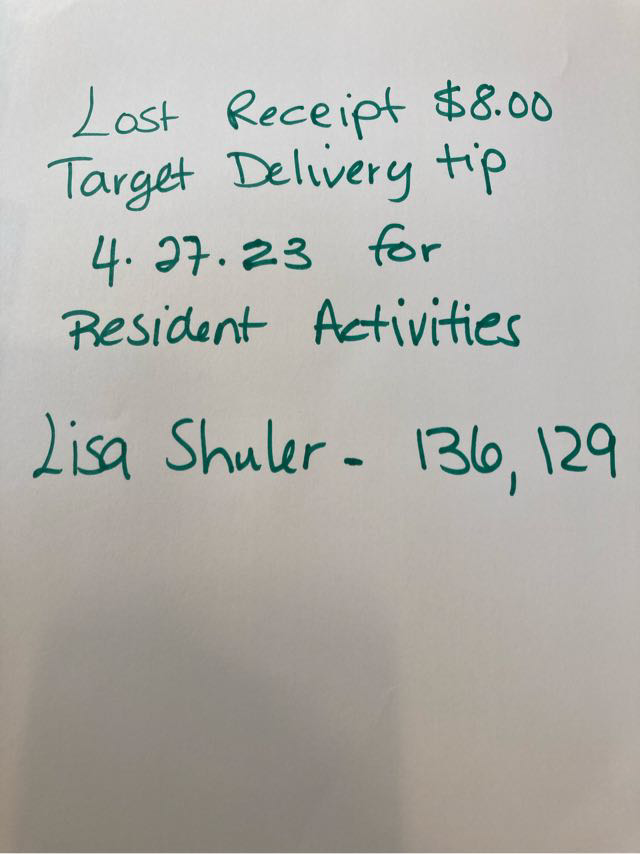 Lost Receipt $8.00
Target Delivery tip
4.27.23 for
Resident Activities
Lisa Shuler - 136, 129